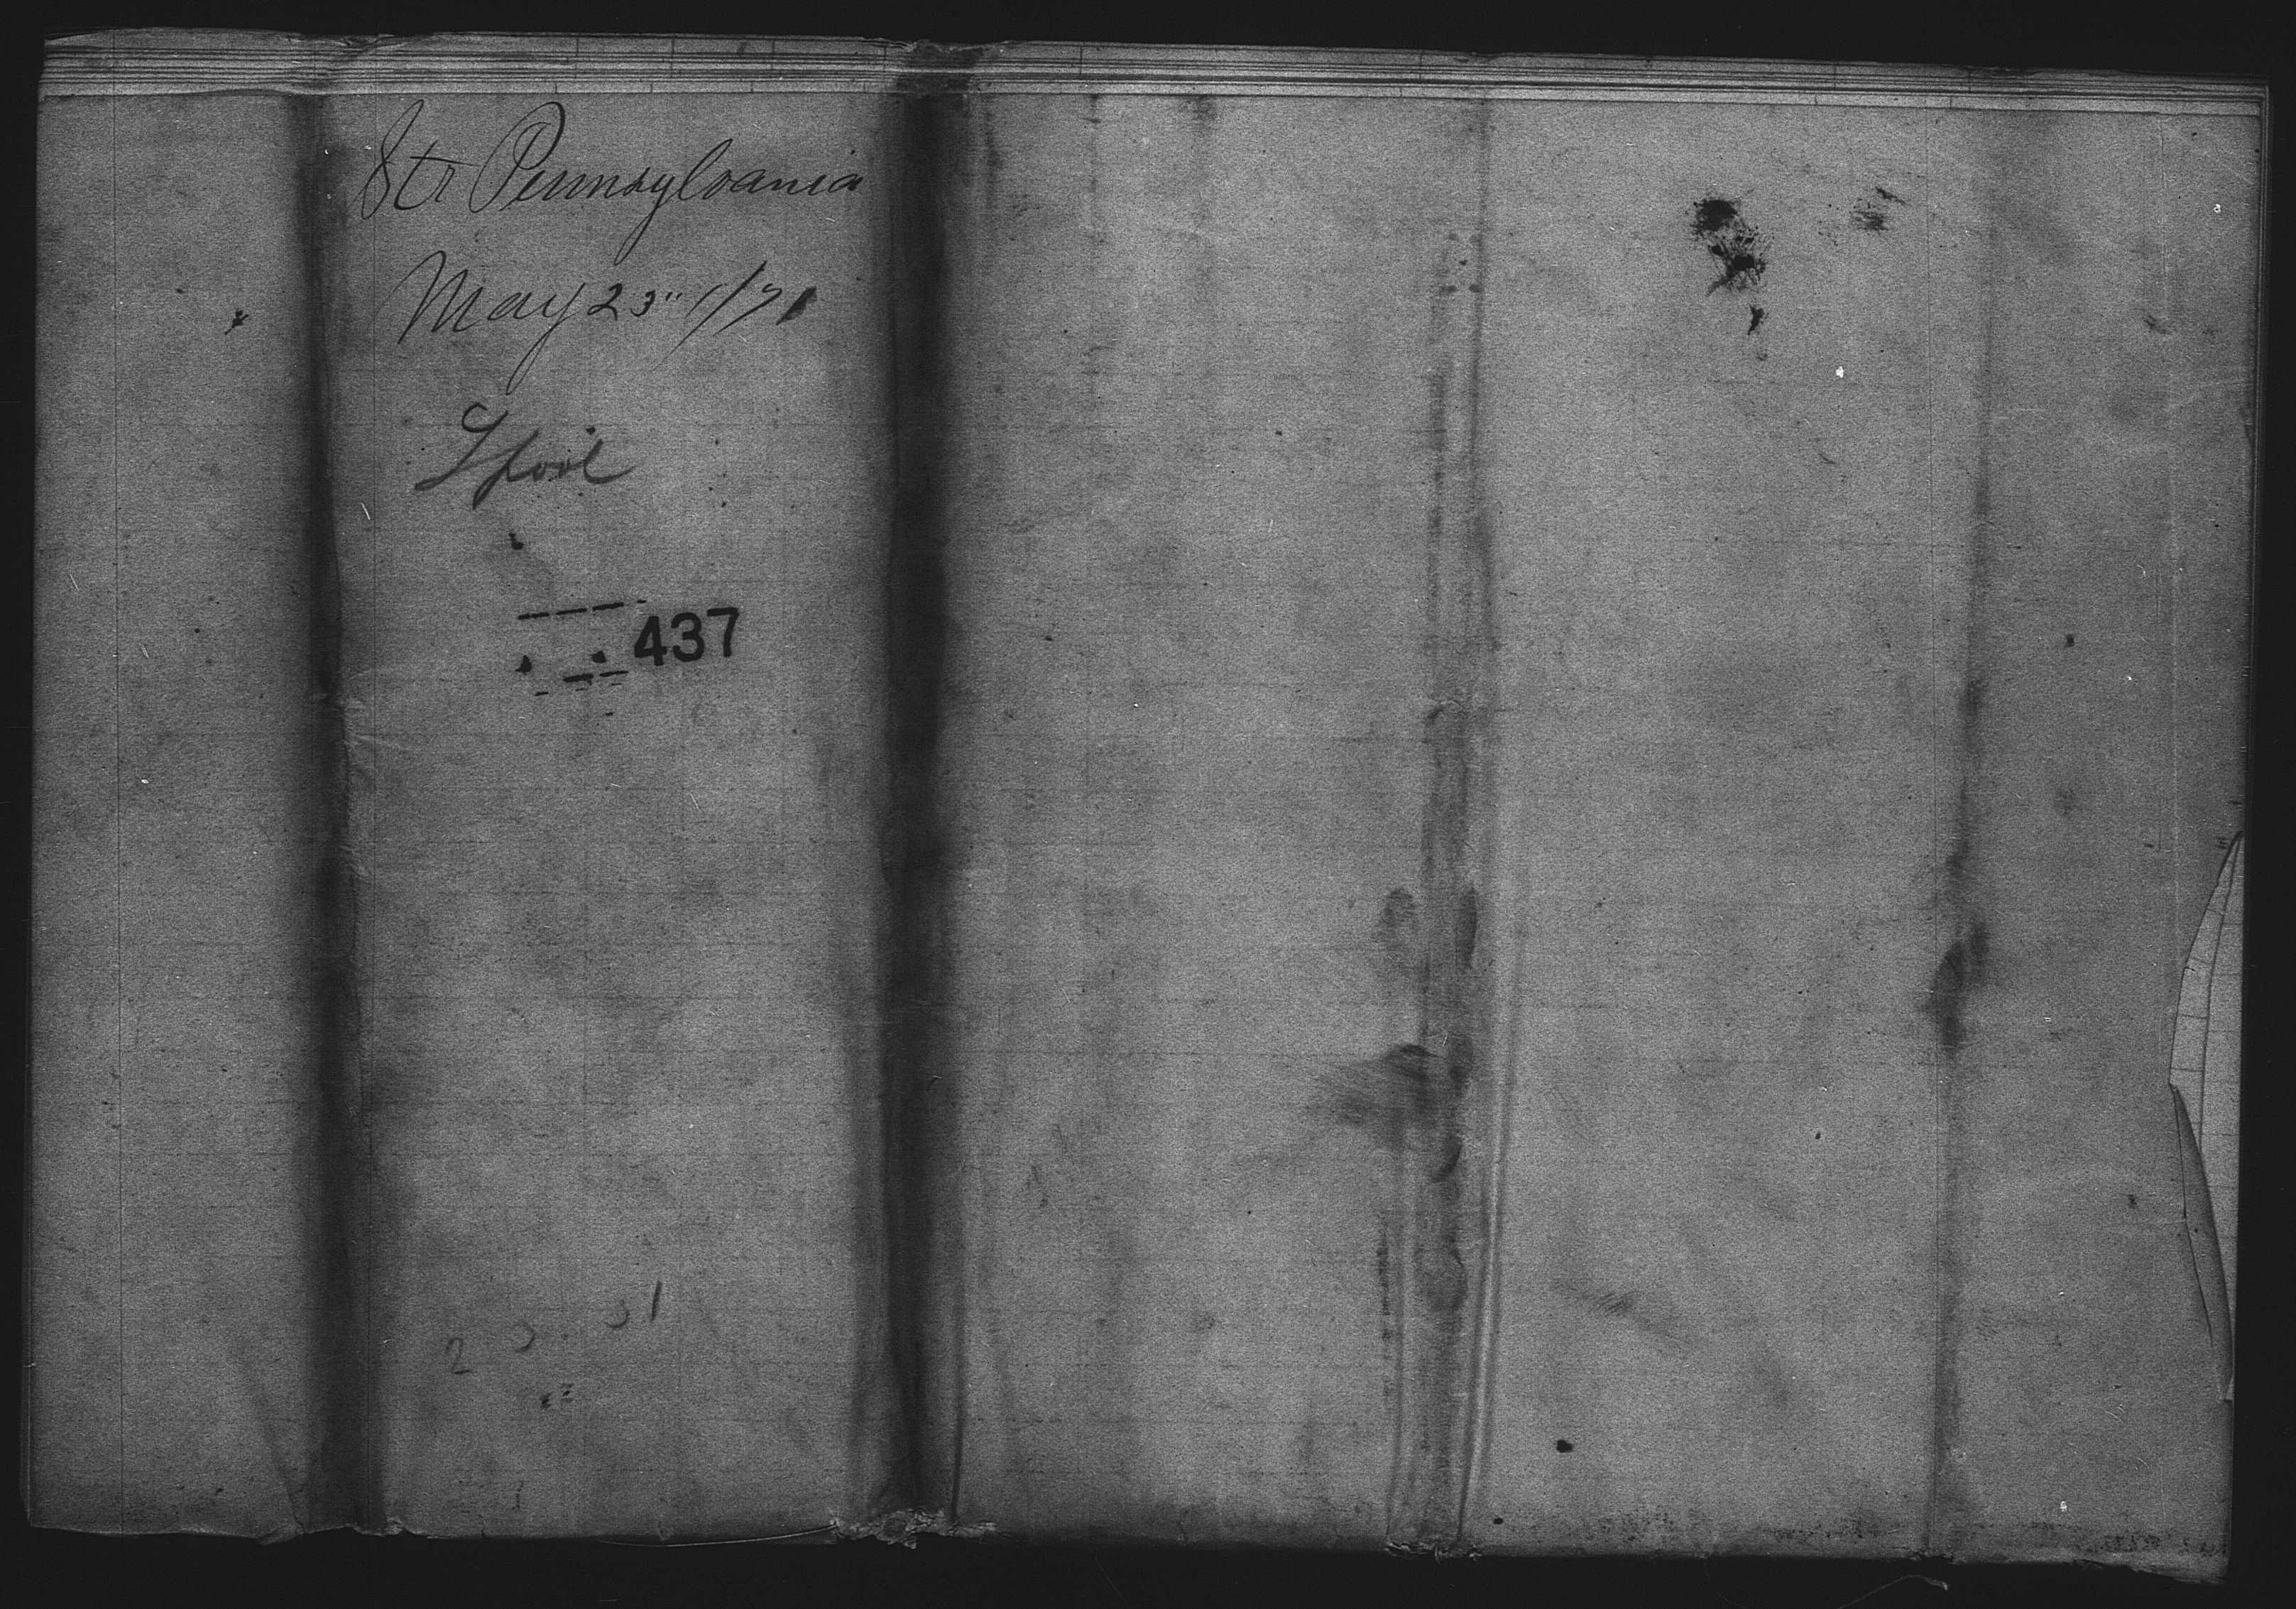 Str Pennsylvania
May 23" 1/71
Lpool
437